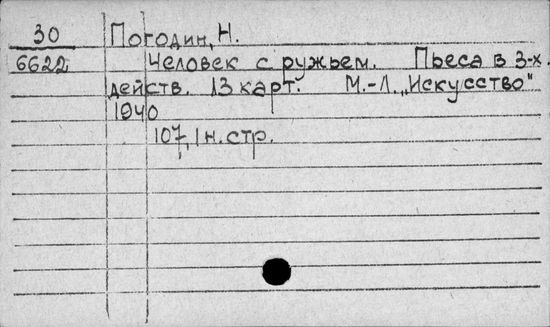 30 Погодин, Н.
6622 Человек с ружьем. Пьеса в 3-х
действ. 13 карт. М.-Л. „Искусство"
1940
107, 1 н. стр.